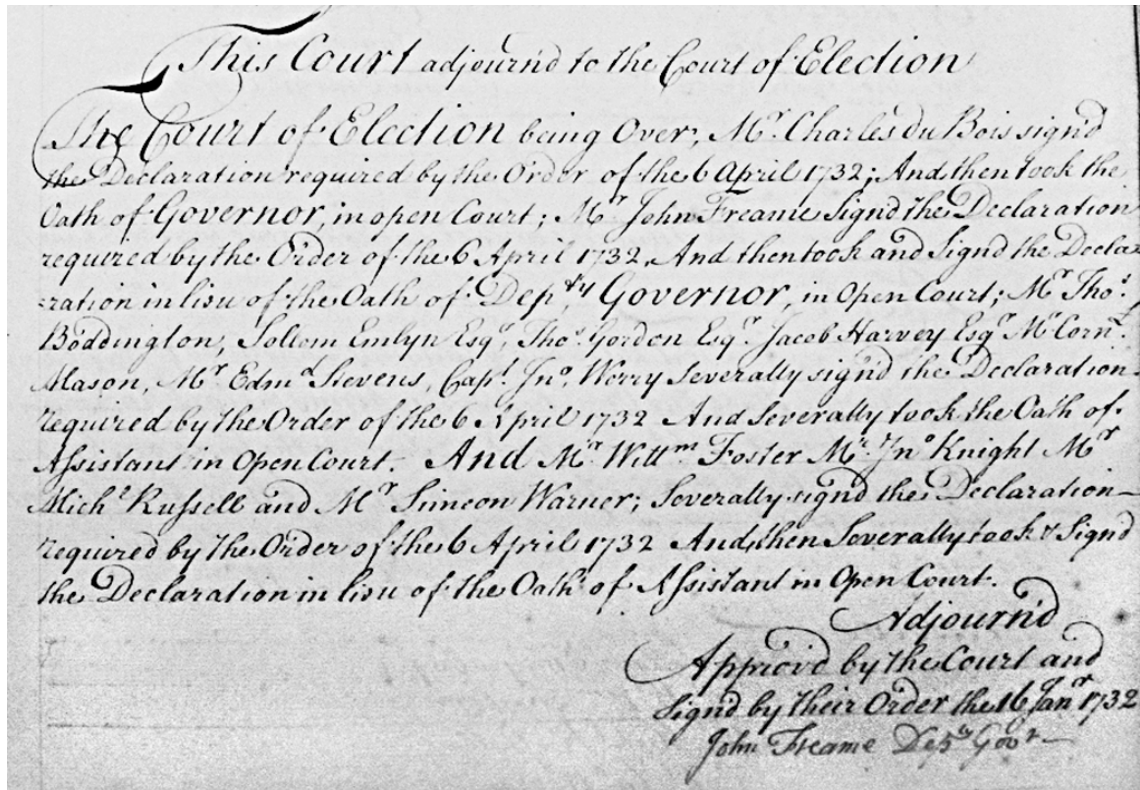 This Court adjourn'd to the Court of Election
The Court of Election being Over, Mr. Charles du Bois signd
the Declaration required by the Order of the 6 April 1732; And then took the
Oath of Governor, in open Court; Mr. John Freame Signd the Declaration
required by the Order of the 6 April 1732, And then took and Signd the Decla-
-ration in lieu of the Oath of Depty Governor, in Open Court; Mr. Thos.
Boddington, Sollom Emlyn Esqr. Tho. Gordon Esqr. Jacob Harvey Esqr. Mr. Corns.
Mason, Mr. Edmd Stevens, Capt. Jno. Worry Severally signd the Declaration
required by the Order of the 6 April 1732 And Severally took the Oath of
Assistant in Open Court. And Mr. Willm Foster Mr. Jno Knight Mr
Michl Russell and Mr. Simeon Warner; Severally signd the Declaration
required by the Order of the 6 April 1732 And then Severally took & Signd
the Declaration in lieu of the Oath of Assistant in Open Court.
Adjourn'd
Approvd by the Court and
Signd by their Order the 16 Janr 1732
John Freame Depty Govr